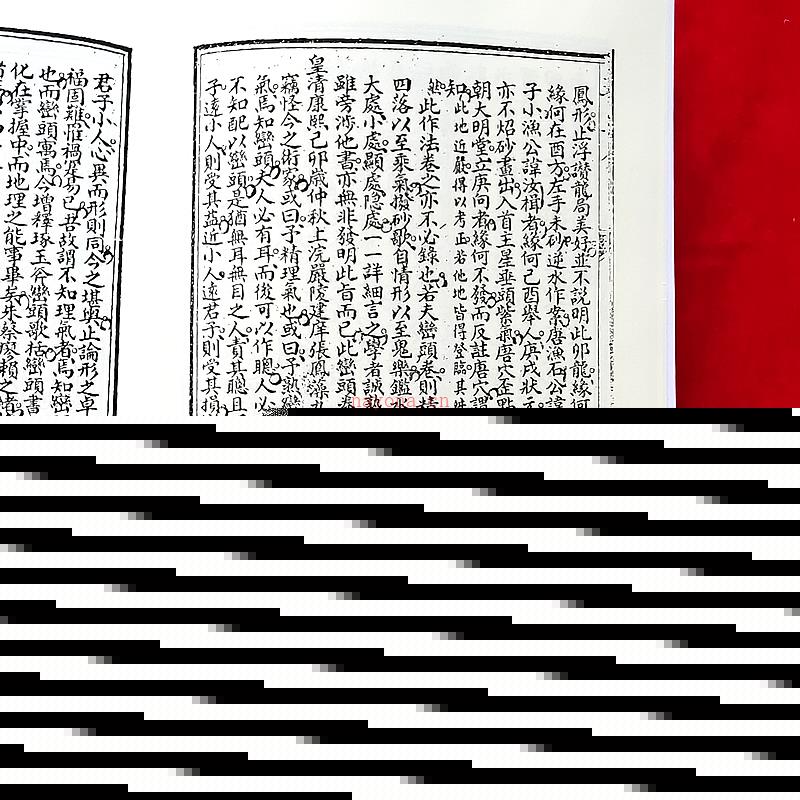 鳳形止浮讚龍局美好並不說明此卯龍緣何
緣何在酉方左手未砂逆水作案唐漁石公諱
子小漁公諱汝楫者緣何己酉舉人庚戌狀元
亦不焰砂盡出入首王星垂頭紫氣唐穴歪點
朝大明堂立庚向者緣何不發而反註唐穴謂
知此地近嚴得以考正若他地皆得登臨其
然此作法卷之亦不必錄也若夫巒頭卷則
四落以至乘氣撥砂歌自情形以至鬼樂鑑
大處小處顯處隱處一一詳細言之學者誠
雖旁涉他書亦無非發明此旨而已此巒頭卷
皇清康熙己卯歲仲秋上浣嚴陵建庠張鳳藻
竊怪今之術家或曰予精理氣也或曰予熟巒
氣焉知巒頭夫人必有耳而後可以作聰人必
不知配以巒頭是猶無耳無目之人責其聰且
子遠小人則受其益近小人遠君子則受其損
君子小人心異而形則同今之堪輿止論形之卓
福固難惟禍甚易已吾故謂不知理氣者焉知巒
也而巒頭寓焉今增釋琢玉斧巒頭歌括巒頭書
化在掌握中而地理之能事畢矣朱蔡廖賴之